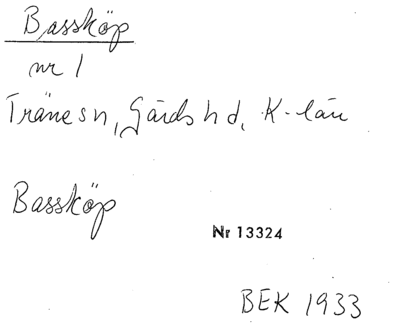 Bassköp
nr 1
Träne sn, Gärds hd, K-län
Bassköp
Nr 13324
BEK 1933